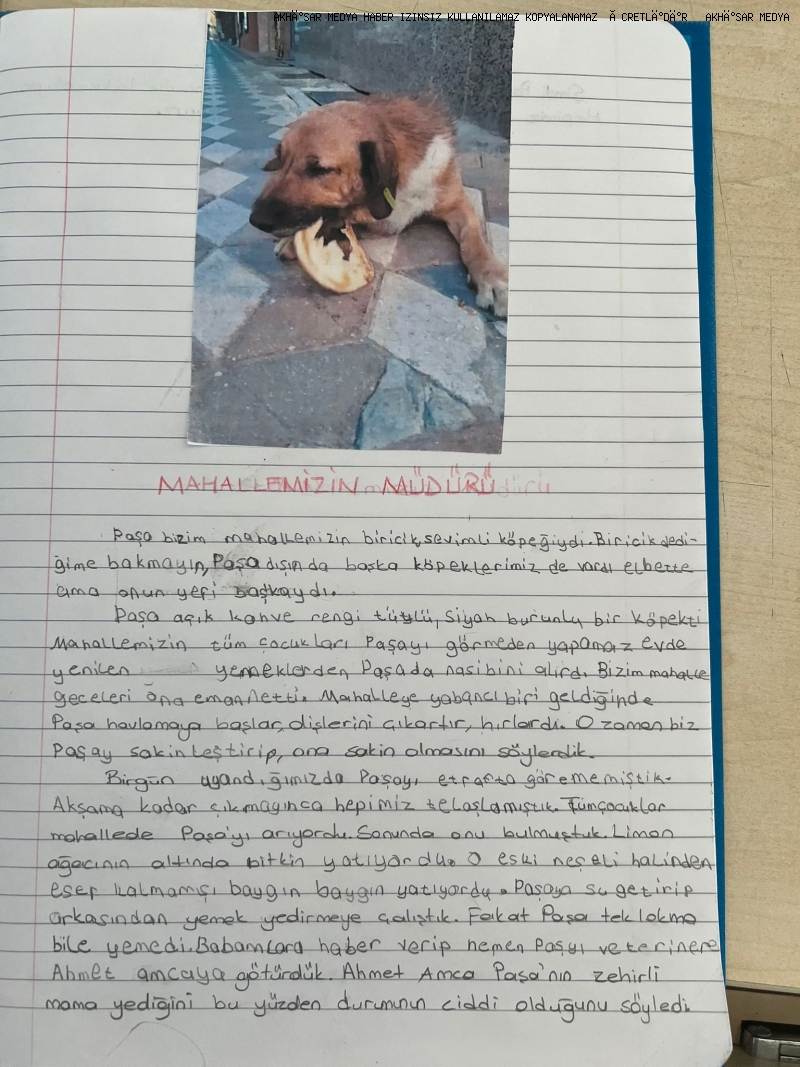 AKHİSAR MEDYA HABER IZINSIZ KULLANILAMAZ KOPYALANAMAZ Ã CRETLÄ°DÄ°R AKHÄ°SAR MEDYA
MAHALLEMİZİN MÜDÜRÜ
Paşa bizim mahallemizin biricik, sevimli köpeğiydi. Biricik dedi-
ğime bakmayın, Paşa dışında başka köpeklerimiz de vardı elbette
ama onun yeri başkaydı.
Paşa açık kahve rengi tüylü, siyah burunlu bir köpekti
Mahallemizin tüm çocukları Paşayı görmeden yapamaz evde
yenilen yemeklerden Paşada nasibini alırdı. Bizim mahalle
geceleri ona emannetti. Mahalleye yabancı biri geldiğinde
Paşa havlamaya başlar, dişlerini çıkartır, hırlardı. O zaman biz
Paşay sakinleştirip, ona sakin olmasını söylerdik.
Birgün uyandığımızda Paşayı etrafta görememiştik.
Akşama kadar çıkmayınca hepimiz telaşlamıştık. Tümçocuklar
mahallede Paşa'yı arıyordu. Sonunda onu bulmuştuk. Limon
ağacının altında bitkin yatıyordu. O eski neşeli halinden
eser kalmamışı baygın baygın yatıyordu. Paşaya su getirip
arkasından yemek yedirmeye çalıştık. Fakat Paşa tek lokma
bile yemedi. Babamlara haber verip hemen Paşyı veterinere
Ahmet amcaya götürdük. Ahmet Amca Paşa'nın zehirli
mama yediğini bu yüzden durumunın ciddi olduğunu söyledi.